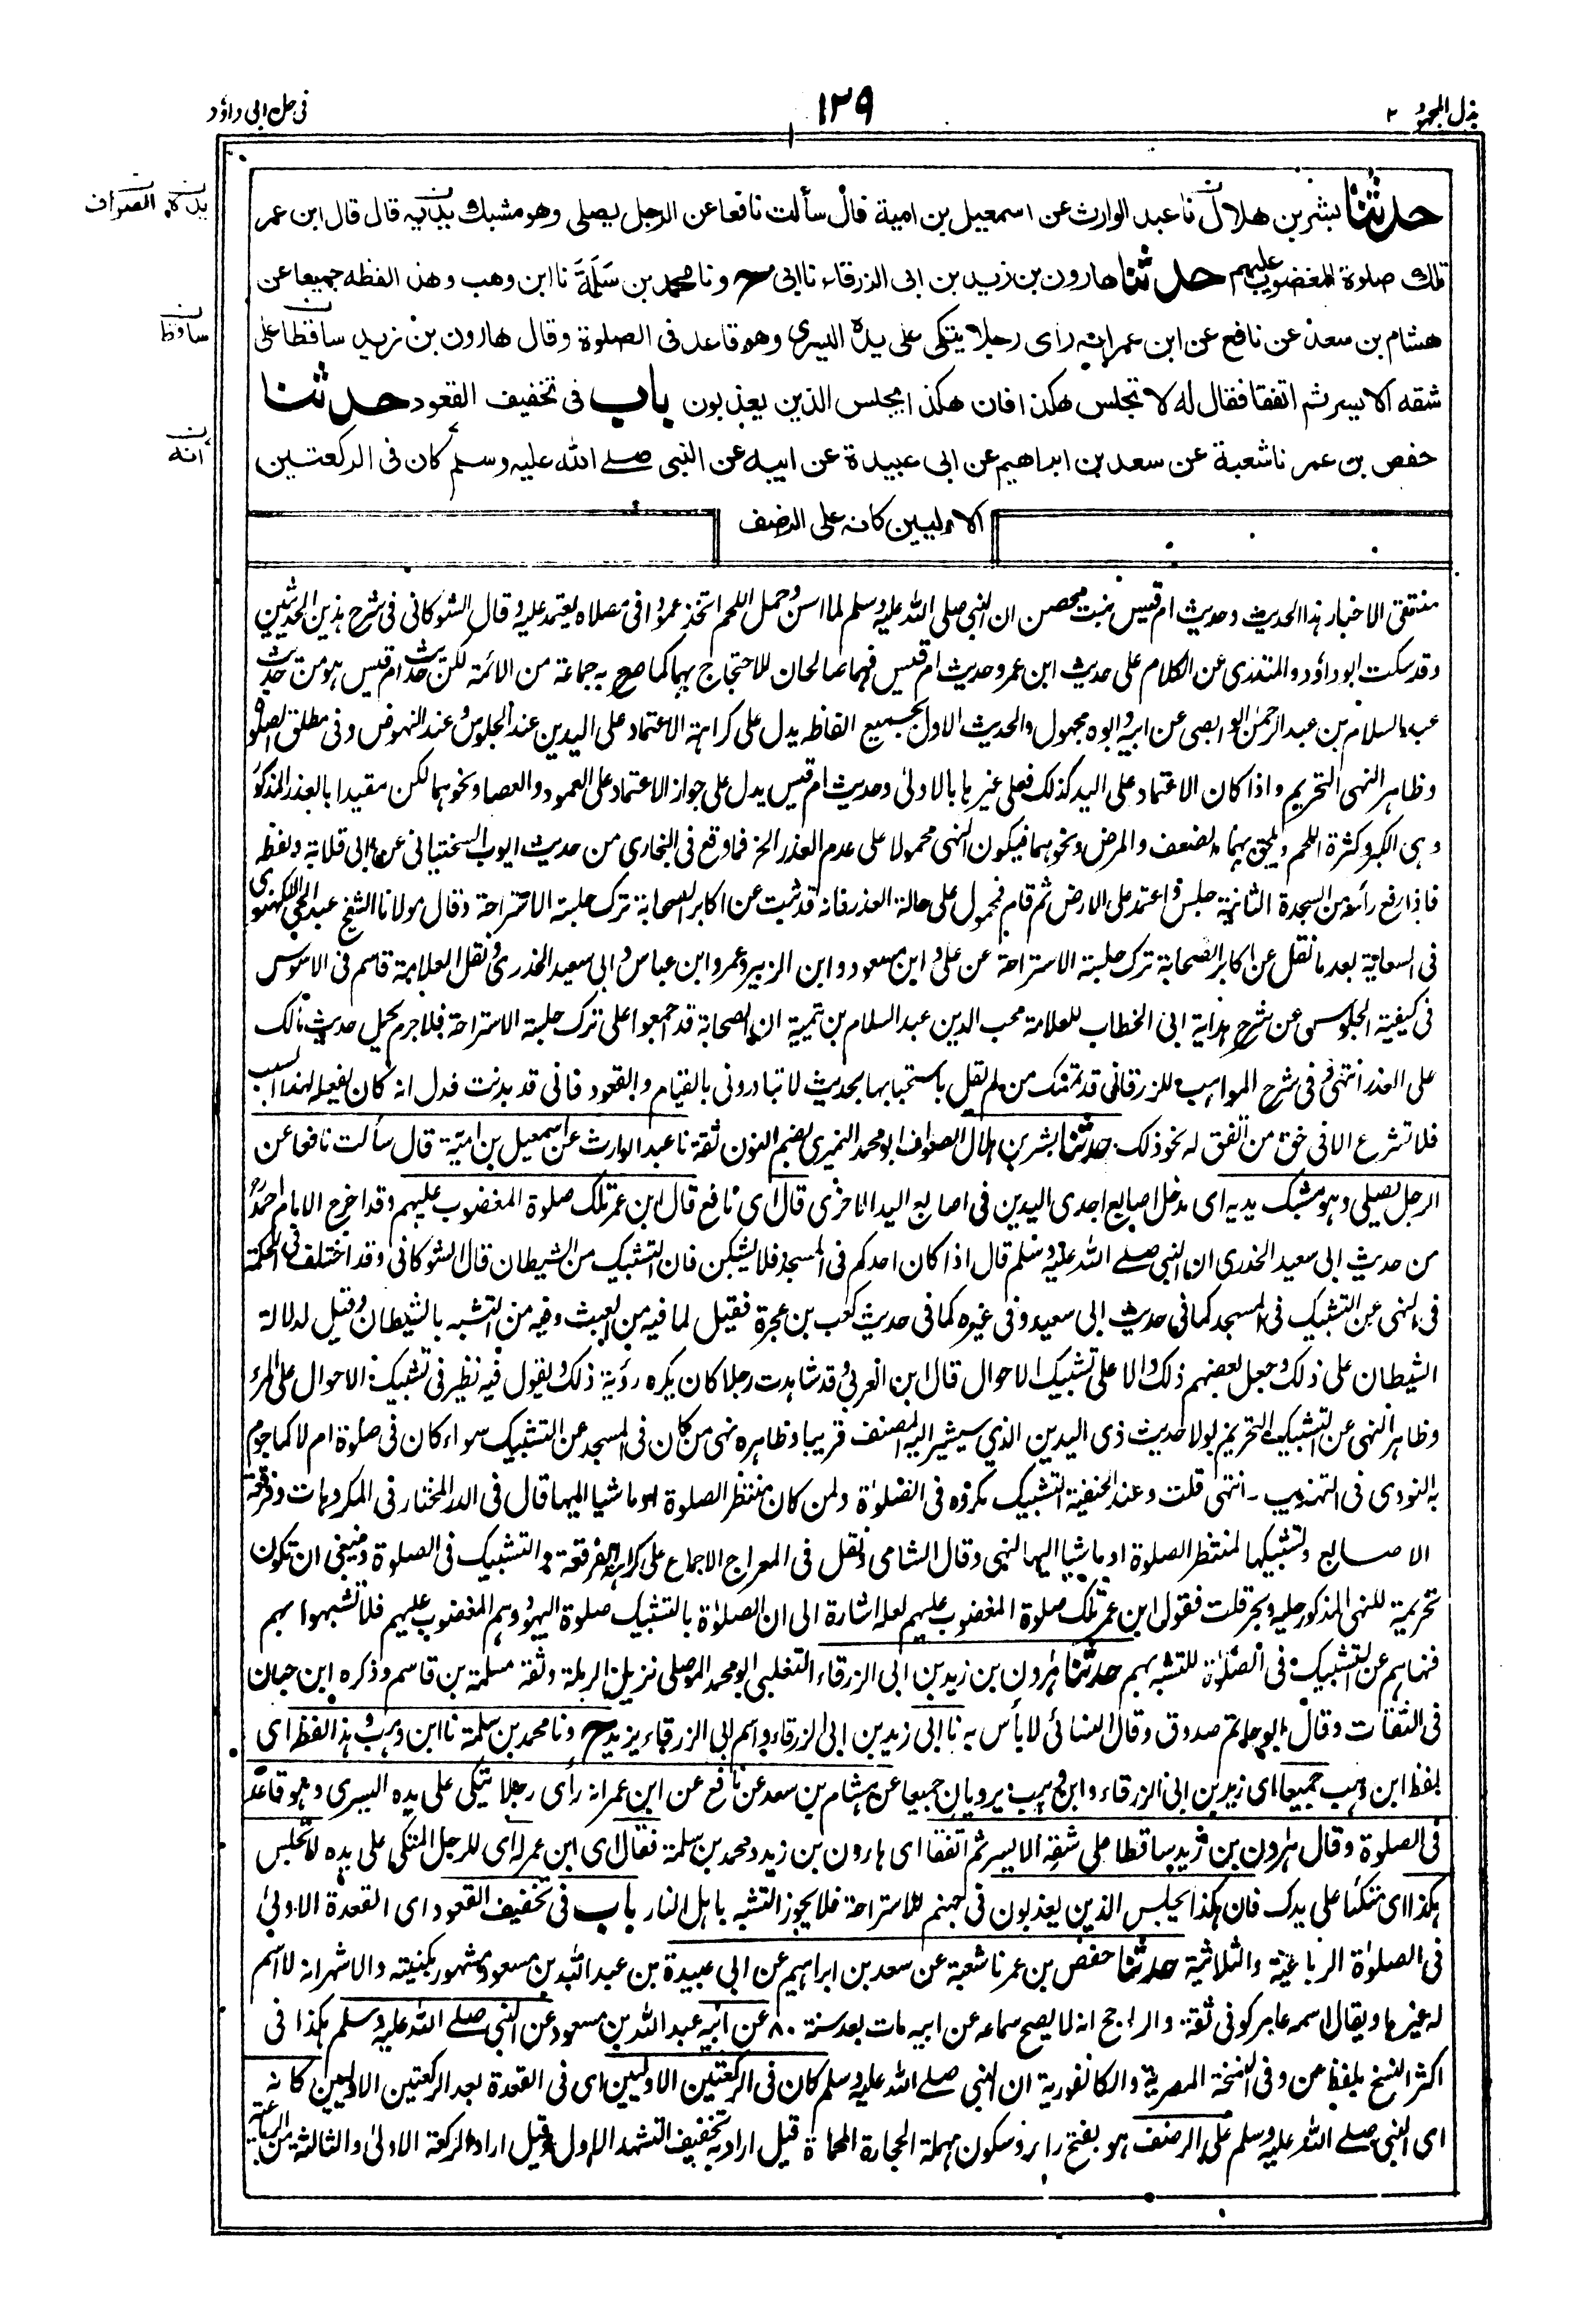 بذل المجهود ٢
١٢٩
فى حل ابى داؤد
حدثنا بشر بن هلال نا عبد الوارث عن اسمعيل بن امية قال سألت نافعا عن الرجل يصلى وهو مشبك يديه قال قال ابن عمر
تلك صلوة المغضوب عليهم حدثنا هارون بن زيد بن ابى الزرقاء نا ابى ح ونا محمد بن سَلَمَة نا ابن وهب وهذا لفظه جميعا عن
هشام بن سعد عن نافع عن ابن عمر انه راى رجلا يتكى على يده اليسرى وهو قاعد فى الصلوة وقال هارون بن زيد ساقطا على
شقه الايسر ثم اتفقا فقال له لا تجلس هكذا فان هكذا يجلس الذين يعذبون باب فى تخفيف القعود حدثنا
حفص بن عمر نا شعبة عن سعد بن ابراهيم عن ابى عبيدة عن ابيه عن النبى صلے الله عليه وسلم كان فى الركعتين
الاوليين كانه على الرضف
ن يده ن الصواف
ن ساقط
ن انه
منتقى الاخبار هذا الحديث وحديث ام قيس بنت محصن ان النبى صلى الله عليه وسلم لما اسن وحمل اللحم اتخذ عمودا فى مصلاه يعتمد عليه وقال الشوكانى فى شرح هذين الحديثين
وقد سكت ابو داؤد والمنذرى عن الكلام على حديث ابن عمر وحديث ام قيس فهما صالحان للاحتجاج بهما كما صرح به جماعة من الائمة لكن حديث ام قيس هو من حديث
عبد السلام بن عبد الرحمن الوابصى عن ابيه وابوه مجهول والحديث الاول بجميع الفاظه يدل على كراهة الاعتماد على اليدين عند الجلوس وعند النهوض وفى مطلق الصلوة
وظاهر النهى التحريم واذا كان الاعتماد على اليد كذلك فعلى غيرها بالاولىٰ وحديث ام قيس يدل على جواز الاعتماد على العمود والعصا ونحوهما لكن مقيدا بالعذر المذكور
وهى الكبر وكثرة اللحم ويلحق بهما الضعف والمرض ونحوهما فيكون النهى محمولا على عدم العذر الخ فما وقع فى البخارى من حديث ايوب السختيانى عن ابى قلابة ولفظه
فاذا رفع رأسه من السجدة الثانية جلس واعتمد على الارض ثم قام فمحمول على حالة العذر فانه قد ثبت عن اكابر الصحابة ترك جلسة الاستراحة وقال مولانا الشيخ عبد الحى اللكهنوى
فى السعاية بعد ما نقل عن اكابر الصحابة ترك جلسة الاستراحة عن على وابن مسعود وابن الزبير وعمر وابن عباس وابى سعيد الخدرى ونقل العلامة قاسم فى الاسوس
فى كيفية الجلوس عن شرح هداية ابى الخطاب للعلامة محب الدين عبد السلام بن تيمية ان الصحابة قد اجمعوا على ترك جلسة الاستراحة فلا جرم يحمل حديث مالك
على العذر انتهى وفى شرح المواهب للزرقانى قد تمسك من لم يقل باستحبابها بحديث لا تبادرونى بالقيام والقعود فانى قد بدنت فدل انه كان يفعله لهذا السبب
فلا تشرع الا فى حق من اتفق له نحو ذلك حدثنا بشر بن هلال الصواف ابو محمد النميرى بضم النون ثقة نا عبد الوارث عن اسمعيل بن امية قال سألت نافعا عن
الرجل يصلى وهو مشبك يديه اى مدخل اصابع احدى اليدين فى اصابع اليد الاخرى قال اى نافع قال ابن عمر تلك صلوة المغضوب عليهم وقد اخرج الامام احمد
من حديث ابى سعيد الخدرى ان النبى صلے الله عليه وسلم قال اذا كان احدكم فى المسجد فلا يشبكن فان التشبيك من الشيطان قال الشوكانى وقد اختلف فى الحكمة
فى النهى عن التشبيك فى المسجد كما فى حديث ابى سعيد وفى غيره كما فى حديث كعب بن عجرة فقيل لما فيه من العبث وفيه من التشبه بالشيطان وقيل لدلالة
الشيطان على ذلك وجعل بعضهم ذلك دالا على تشبيك الاحوال قال ابن العربى وقد شاهدت رجلا كان يكره رؤية ذلك ويقول فيه نظير فى تشبيك الاحوال على المرء
وظاهر النهى عن التشبيك التحريم لولا حديث ذى اليدين الذى سيشير اليه المصنف قريبا وظاهره نهى من كان فى المسجد عن التشبيك سواء كان فى صلوة ام لا كما جزم
به النووى فى التهذيب ۔ انتهى قلت وعند الحنفية التشبيك مكروه فى الصلوٰة ولمن كان منتظر الصلوة او ماشيا اليها قال فى الدر المختار فى المكروهات وفرقعة
الاصابع وتشبيكها لمنتظر الصلوة او ماشيا اليها النهى وقال الشامى ونقل فى المعراج الاجماع على كراهة الفرقعة والتشبيك فى الصلوة وينبغى ان تكون
تحريمية للنهى المذكور حلية وبحر قلت فقول ابن عمر تلك صلوة المغضوب عليهم لعله اشارة الى ان الصلوٰة بالتشبيك صلوة اليهود وهم المغضوب عليهم فلا تشبهوا بهم
فنهاهم عن التشبيك فى الصلوٰة للتشبه بهم حدثنا هٰرون بن زيد بن ابى الزرقاء التغلبى ابو محمد الموصلى نزيل الرملة وثقة مسلمة بن قاسم وذكره ابن حبان
فى الثقات وقال ابو حاتم صدوق وقال النسائى لا بأس به نا ابى زيد بن ابى الزرقاء واسم ابى الزرقاء يزيد ح ونا محمد بن سلمة نا ابن وهب وهذا لفظه اى
لفظ ابن وهب جميعا اى زيد بن ابى الزرقاء وابن وهب يرويان جميعا عن هشام بن سعد عن نافع عن ابن عمر انه رأى رجلا يتكى على يده اليسرى وهو قاعد
فى الصلوة وقال هٰرون بن زيد ساقطا على شقه الايسر ثم اتفقا اى هارون بن زيد ومحمد بن سلمة فقال اى ابن عمر له اى للرجل المتكى على يده لا تجلس
هكذا اى متكئا على يدك فان هكذا يجلس الذين يعذبون فى جهنم للاستراحة فلا يجوز التشبه باهل النار باب فى تخفيف القعود اى القعدة الاولىٰ
فى الصلوٰة الرباعية والثلاثية حدثنا حفص بن عمر نا شعبة عن سعد بن ابراهيم عن ابى عبيدة بن عبد الله بن مسعود مشهور بكنيته والاشهر انه لا اسم
له غيرها ويقال اسمه عامر كوفى ثقة والراجح انه لا يصح سماعه عن ابيه مات بعد سنة ٨٠ عن ابيه عبد الله بن مسعود عن النبى صلے الله عليه وسلم هكذا فى
اكثر النسخ بلفظ عن وفى النسخة المصرية والكانفورية ان النبى صلے الله عليه وسلم كان فى الركعتين الاوليين اى فى القعدة بعد الركعتين الاوليين كانه
اى النبى صلے الله عليه وسلم على الرضف هو بفتح راء وسكون مهملة الحجارة المحماة قيل اراد به تخفيف التشهد الاول وقيل اراد الركعة الاولىٰ والثالثة من الرباعية